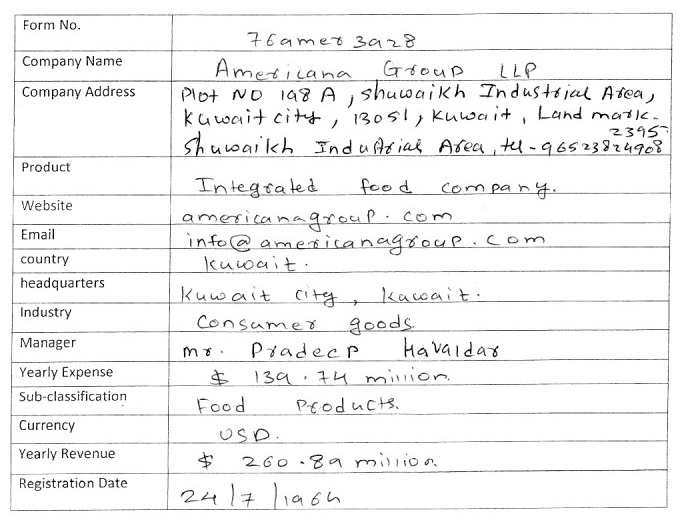 Form No. 76amer3928
Company Name Americana Group LLP
Company Address Plot NO 198 A, Shuwaikh Industrial Area,
Kuwait city, 13051, Kuwait, Land mark-
2395
Shuwaikh Industrial Area, tel-96523824908
Product Integrated food company.
Website americanagroup.com
Email info@americanagroup.com
country Kuwait.
headquarters Kuwait city, Kuwait.
Industry Consumer goods.
Manager mr. Pradeep Havaldar
Yearly Expense $ 139.74 million.
Sub-classification Food Products.
Currency USD.
Yearly Revenue $ 260.89 million
Registration Date 24/7/1964